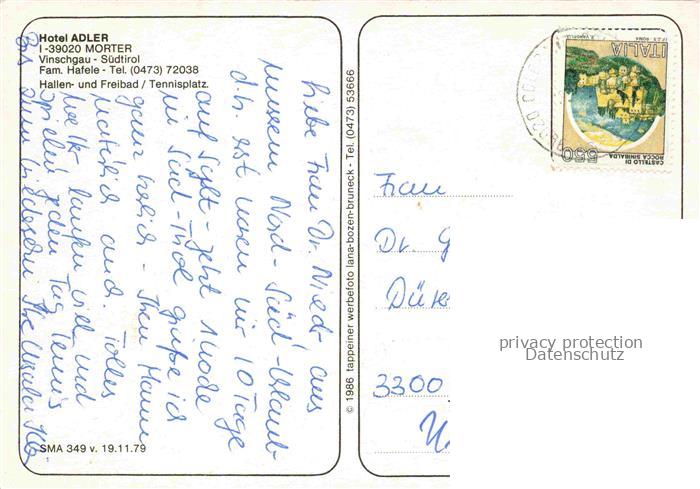 Hotel ADLER
I-39020 MORTER
Vinschgau - Südtirol
Fam. Hafele - Tel. (0473) 72038
Hallen- und Freibad / Tennisplatz.
Liebe Frau Dr. aus
unserem Nord-Süd-Urlaub
d.h. erst waren wir 10 Tage
auf Sylt - jetzt 1 Woche
in Süd-Tirol grüße ich
ganz herzlich - Ihren Mann
natürlich auch. Tolles
laufen viel und
spielen jeden Tag Tennis
Bis zum Wiedersehn Ihre Ursula
SMA 349 v. 19.11.79
© 1986 tappeiner werbefoto lana-bozen-bruneck - Tel. (0473) 53666
ITALIA
CASTELLO DI
ROCCA SINIBALDA
550
Frau
Dr. G
3300
privacy protection
Datenschutz